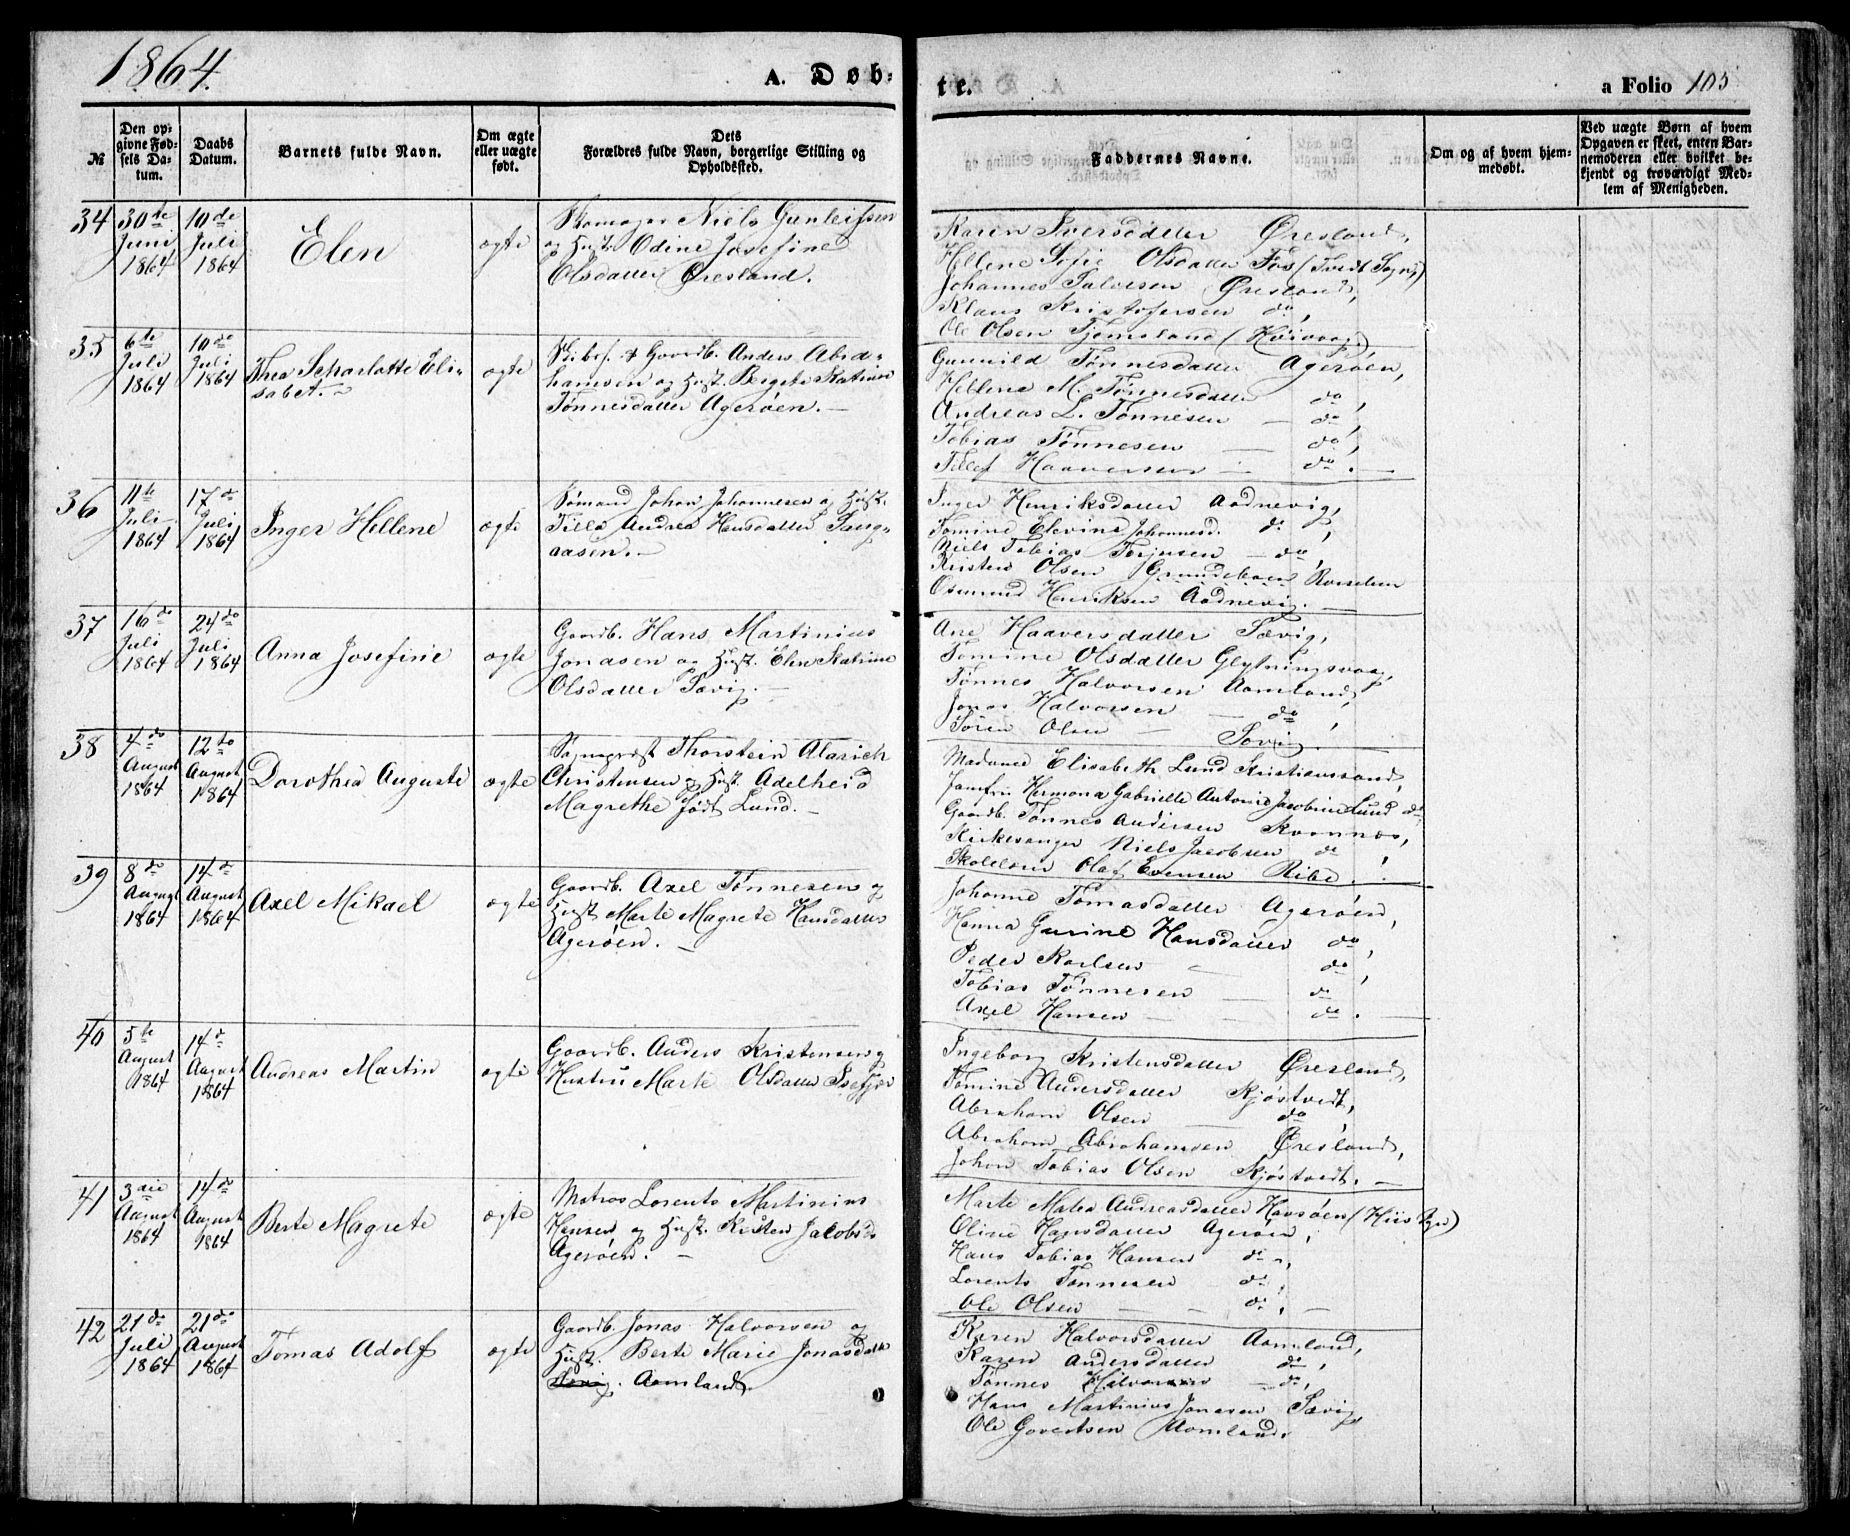 1864.
A. Døb-
te.
a Folio 105
№
Den op-
givne Fød-
sels Da-
tum.
Daabs
Datum.
Barnets fulde Navn.
Om ægte
eller uægte
født.
Dets
Forældres fulde Navn, borgerlige Stilling og
Opholdssted.
Faddernes Navne.
Om og af hvem hjem-
medøbt.
Ved uægte Børn af hvem
Opgaven er skeet, enten Bar-
nemoderen eller hvilket be-
kjendt og troværdigt Med-
lem af Menigheden.
34
30te
Juni
1864
10de
Juli
1864
Elen
ægte
Skomager Niels Gunleifsen
og Hust. Odine Josefine
Olsdatter Øresland.
Karen Iversdatter Øresland,
Hellene Sofie Olsdatter Fos (Tvedt Sogn)
Johannes Salvesen Øresland,
Klaus Kristofersen do,
Ole Olsen Tjømsland (Høivaag)
35
6te
Juli
1864
10de
Juli
1864
Thea Scharlotte Eli-
sabet.
ægte
Skibsf. & Gaardb. Anders Abra-
hamsen og Hust. Bergete Katrine
Tønnesdatter Agerøen.
Gunnild Tønnesdatter Agerøen,
Hellene M. Tønnesdatter do,
Andreas L. Tønnesen do,
Tobias Tønnesen do,
Tellef Haaversen do.
36
11te
Juli
1864
17de
Juli
1864
Inger Hellene
ægte
Sømand Johan Johannesen og Hust.
Tilla Andrea Hansdatter Sang-
aasen.
Inger Henriksdatter Aadnevig,
Tomine Elevine Johannesd. do,
Niels Tobias Terjusen do,
Kristen Olsen
Osmund Henriksen Aadnevig.
37
16de
Juli
1864
24do
Juli
1864
Anna Josefine
ægte
Gaardb. Hans Martinius
Jonasen og Hust. Elen Katrine
Olsdatter Sævig.
Ane Haaversdatter Sævig,
Tomine Olsdatter Glytningsvaag,
Tønnes Halvorsen Aamland,
Jonas Halvorsen do,
Søren Olsen Sævig.
38
4de
August
1864
12te
August
1864
Dorothea Auguste
ægte
Sognepræst Thorstein Alarich
Christensen og Hust. Adelheid
Magrethe født Lund.
Madamed Elisabeth Lund Kristianssand,
Jomfru Hermona Gabrielle Antonie Jacobine Lund do,
Gaardb. Tønnes Andersen Kvannes,
Kirkesanger Niels Jacobsen do,
Skolelærer Olaf Evensen Ribe.
39
8de
August
1864
14de
August
1864
Axel Mikael
ægte
Gaardb. Axel Tønnesen og
Hust. Marte Magrete Hansdatter
Agerøen.
Johanne Tomasdatter Agerøen,
Hanna Gurine Hansdatter do,
Peder Karlsen do,
Tobias Tønnesen do
Axel Hansen do.
40
5te
August
1864
14de
August
1864
Andreas Martin
ægte
Gaardb. Anders Kristensen og
Hustru Marte Olsdatter Isefjær
Ingeborg Kristensdatter Øresland,
Tomine Andersdatter Kjøstvedt,
Abraham Olsen do,
Abraham Abrahamsen Øresland,
Johan Tobias Olsen Kjøstvedt.
41
3die
August
1864
14de
August
1864
Berte Magrete
ægte
Matros Lorents Martinius
Hansen og Hust. Kristen Jacobsd.
Agerøen.
Marte Malea Andreasdatter Havsøen
Oline Hansdatter Agerøen,
Hans Tobias Hansen do,
Lorents Tønnesen do,
Ole Olsen do.
42
21de
Juli
1864
21de
August
1864
Tomas Adolf
ægte
Gaardb. Jonas Halvorsen og
Hust. Berte Marie Jonasdatter
Sævig. Aamland.
Karen Halvorsdatter Aamland,
Karen Andersdatter do,
Tønnes Halvorsen do,
Hans Martinius Jonasen Sævig
Ole Govertsen Aamland.